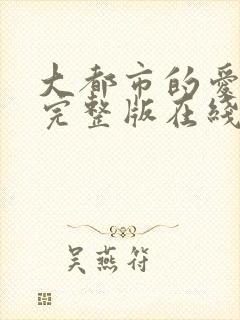 大都市的愛
完整版在綫
吴燕符